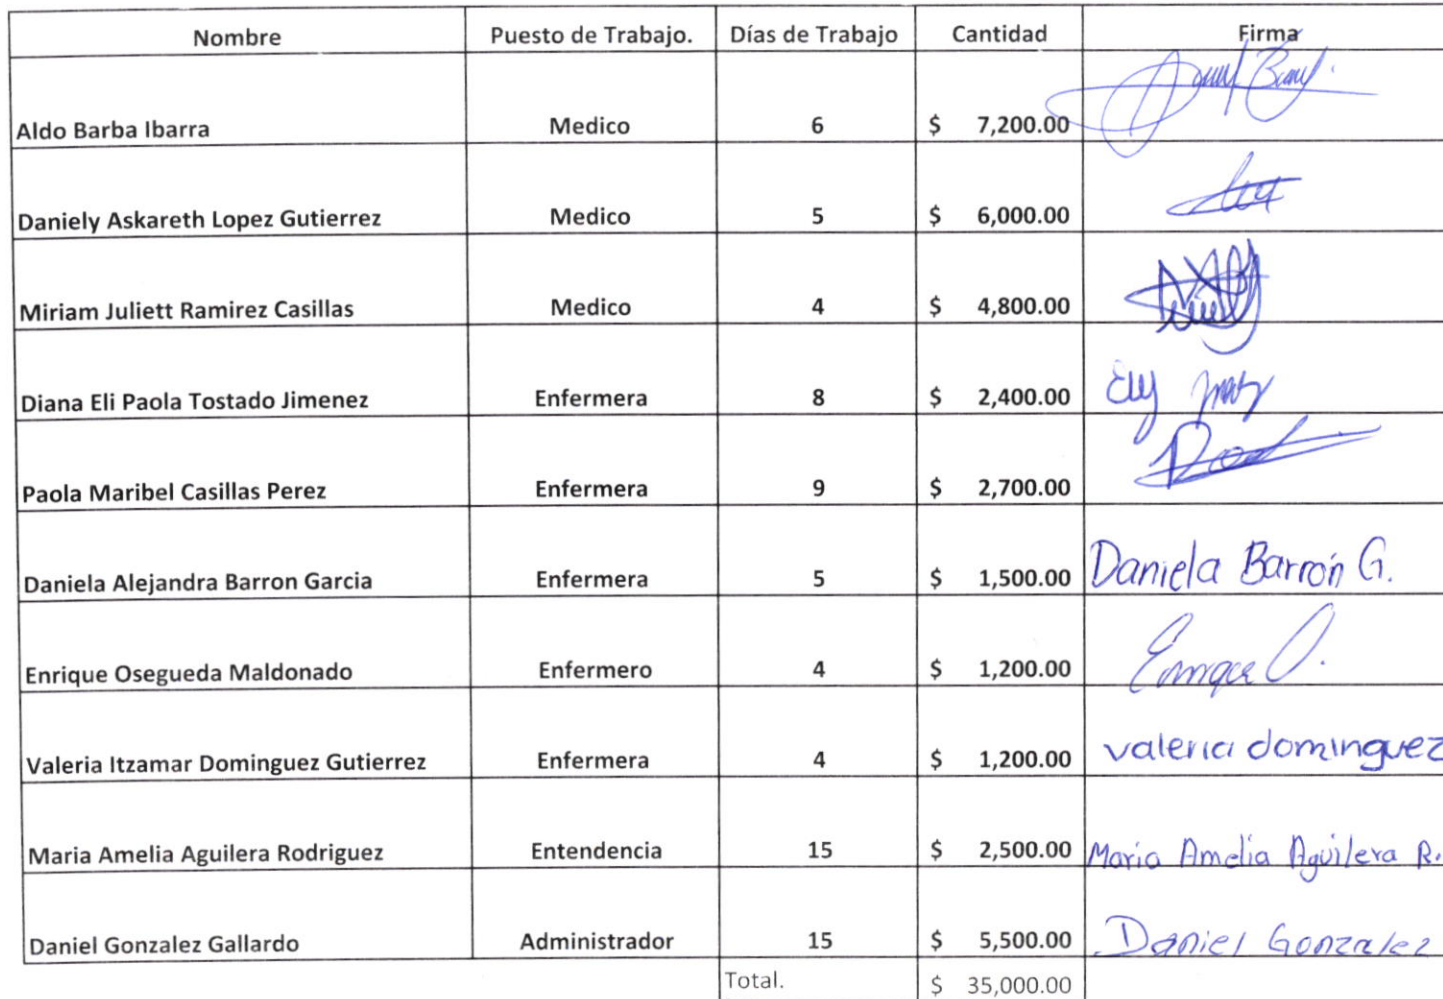 Nombre Puesto de Trabajo. Días de Trabajo Cantidad Firma
Aldo Barba Ibarra Medico 6 $ 7,200.00
Daniely Askareth Lopez Gutierrez Medico 5 $ 6,000.00
Miriam Juliett Ramirez Casillas Medico 4 $ 4,800.00
Diana Eli Paola Tostado Jimenez Enfermera 8 $ 2,400.00 Ely
Paola Maribel Casillas Perez Enfermera 9 $ 2,700.00
Daniela Alejandra Barron Garcia Enfermera 5 $ 1,500.00 Daniela Barrón G.
Enrique Osegueda Maldonado Enfermero 4 $ 1,200.00 Enrique O.
Valeria Itzamar Dominguez Gutierrez Enfermera 4 $ 1,200.00 valeria dominguez
Maria Amelia Aguilera Rodriguez Entendencia 15 $ 2,500.00 Maria Amelia Aguilera R.
Daniel Gonzalez Gallardo Administrador 15 $ 5,500.00 Daniel Gonzalez
Total. $ 35,000.00